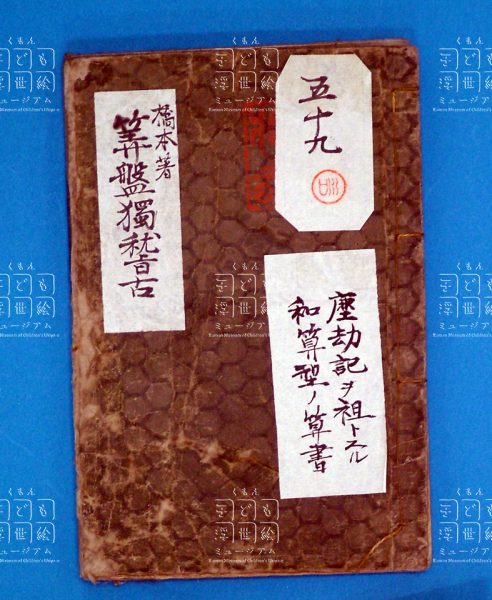 五十九
塵劫記ヲ祖トスル
和算型ノ算書
橋本著
筭盤獨稽古
くもん
子ども
浮世絵
ミュージアム
Kumon Museum of Children's Ukiyo-e